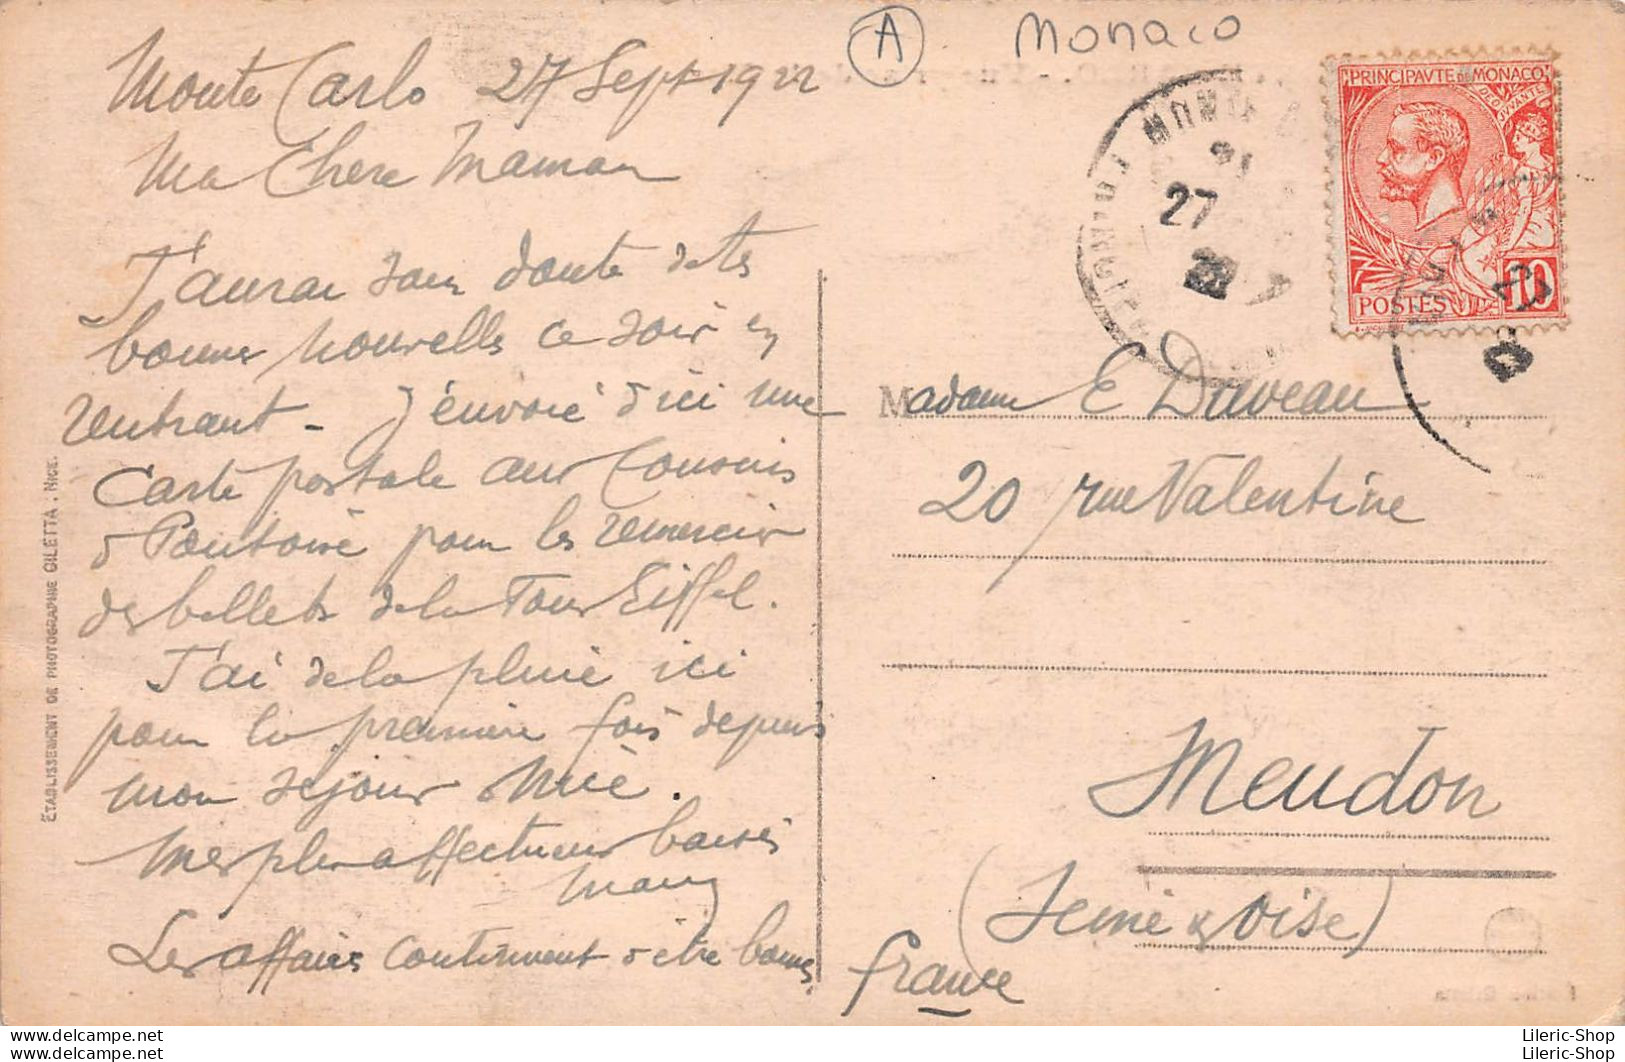 A Monaco
Monte Carlo 27 Sept 1922
Ma Chere Maman
J'aurai sans doute de tes
bonnes nouvelles ce soir en
rentrant - J'envoie d'ici une
Carte postale aux Cousins
de Pontoise pour les remercier
des billets de la Tour Eiffel.
J'ai de la pluie ici
pour la première fois depuis
mon séjour Nice.
Mes plus affectueux baisers
Les affaires continuent à être bonnes
ETABLISSEMENT DE PHOTOGRAPHIE GILETTA, NICE.
PRINCIPAVTE DE MONACO
DEO JVVANTE
POSTES 10
27
Madame E Daveau
20 rue Valentine
Meudon
(Seine & Oise)
france
Lileric-Shop
Lileric-Shop
Lileric-Shop
Lileric-Shop